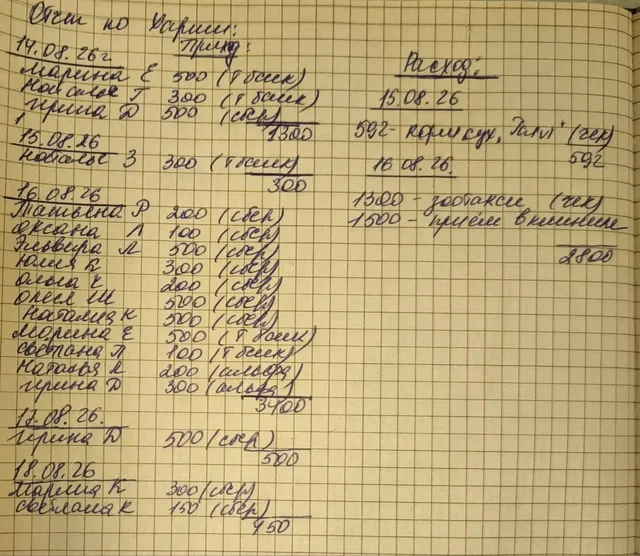 Отчет по Карии:
Приход:
14.08.26г
Марина Е 500 (Тбанк)
Наталья Г 300 (Тбанк)
Ирина Д 500 (сбер)
1300
15.08.26
Наталья З 300 (Тбанк)
300
16.08.26
Татьяна Р 200 (сбер)
Оксана Л 100 (сбер)
Эльвира Л 500 (сбер)
Юлия Б 300 (сбер)
Ольга К 200 (сбер)
Олеся Ш 500 (сбер)
Наталия К 500 (сбер)
Марина Е 500 (Тбанк)
Светлана П 100 (Тбанк)
Наталья К 200 (альфа)
Ирина Д 300 (альфа)
3400
17.08.26.
Ирина Д 500 (сбер)
500
18.08.26
Марина К 300 (сбер)
Светлана К 150 (сбер)
450
Расход:
15.08.26
592 - корм сух. (чек)
592
16 08.26.
1300 - зоотакси (чек)
1500 - приём в клинике
2800